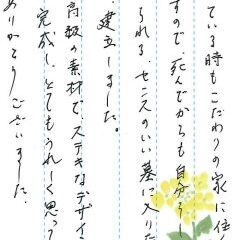 ている時もこだわりの家に住ん
すので、死んでからも自分らし
られる、センスのいい墓に入りた
建立しました。
高級の素材で、ステキなデザイン
完成し、とてもうれしく思って
ありがとうございました。